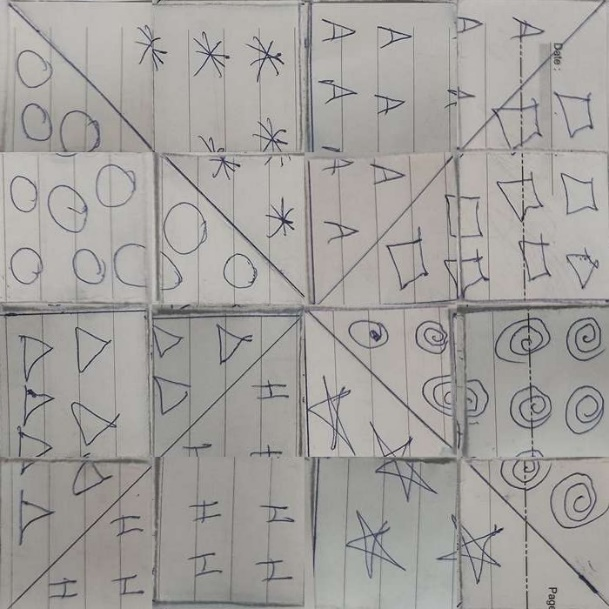 A A A A
Date :
A A A
A A
A
H
H H H
H H H H
Page